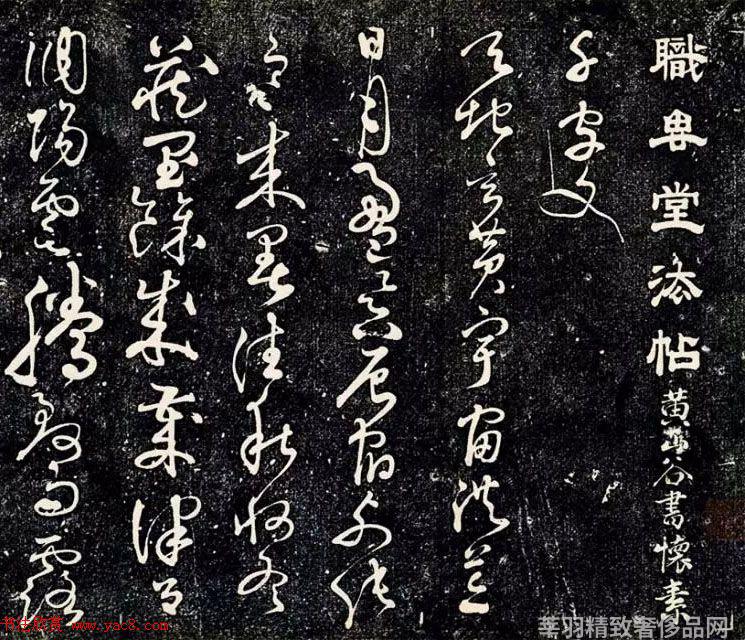 職思堂法帖 黄山谷書懷素
千字文
天地玄黃宇宙洪荒
日月盈昃辰宿列張
寒來暑往秋收冬
藏閏餘成歲律呂
調陽雲騰致雨露
书法欣赏 www.yac8.com
莘羽精致奢侈品网